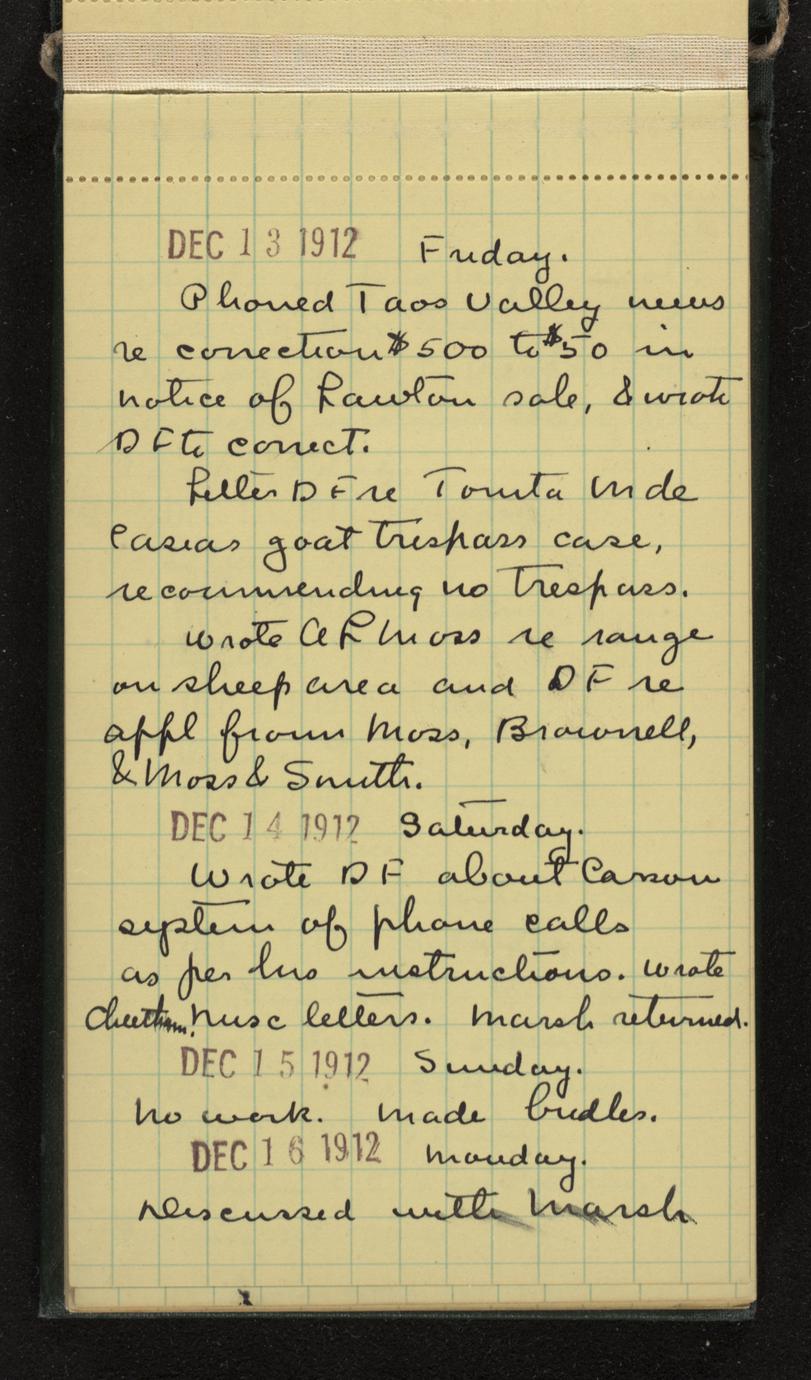 DEC 13 1912 Friday.
Phoned Taos Valley news
re correction $500 to $50 in
notice of Lawton sale, & wrote
DF to correct.
Letter DF re Tomta M de
Casias goat trespass case,
recommending no trespass.
Wrote A L Moss re range
on sheep area and DF re
appl from Moss, Brownell,
& Moss & Smith.
DEC 14 1912 Saturday.
Wrote DF about Carson
system of phone calls
as per his instructions. Wrote
Cheetham. Misc letters. Marsh returned.
DEC 15 1912 Sunday.
No work. Made bridles.
DEC 16 1912 Monday.
Discussed with Marsh